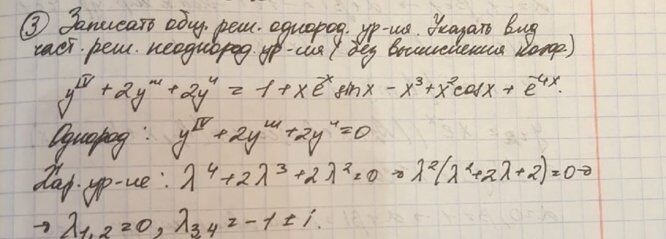 ③ Записать общ. реш. однород. ур-ия. Указать вид
част. реш. неоднород. ур-ия (без вычисления коэф.)
y^IV + 2y''' + 2y'' = 1 + xe^-x sinx − x³ + x² cosx + e^-4x.
Однород: y^IV + 2y''' + 2y'' = 0
Хар. ур-ие: λ⁴ + 2λ³ + 2λ² = 0 → λ²(λ² + 2λ + 2) = 0 →
→ λ₁,₂ = 0, λ₃,₄ = −1 ± i.